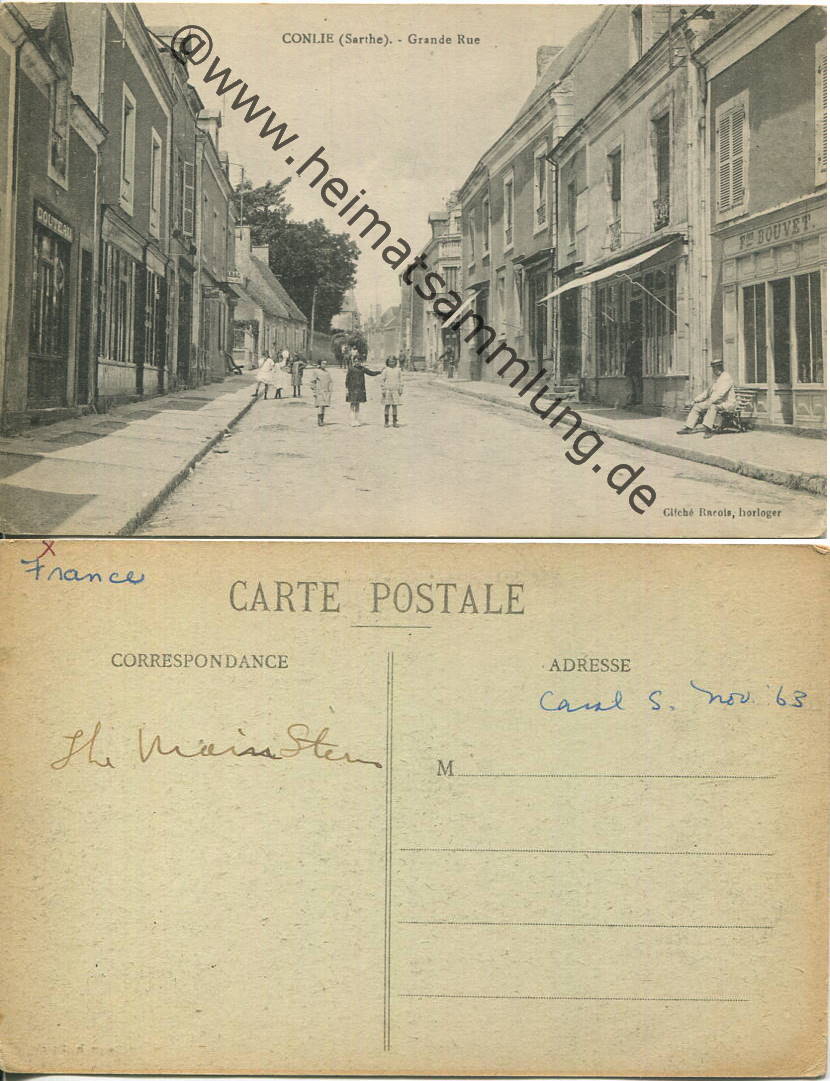 CONLIE (Sarthe). - Grande Rue
@www.heimatsammlung.de
Fd BOUVET.
Cliché Racois, horloger
x
France
CARTE POSTALE
CORRESPONDANCE
ADRESSE
Carol S. Nov. '63
The Main Stem
M